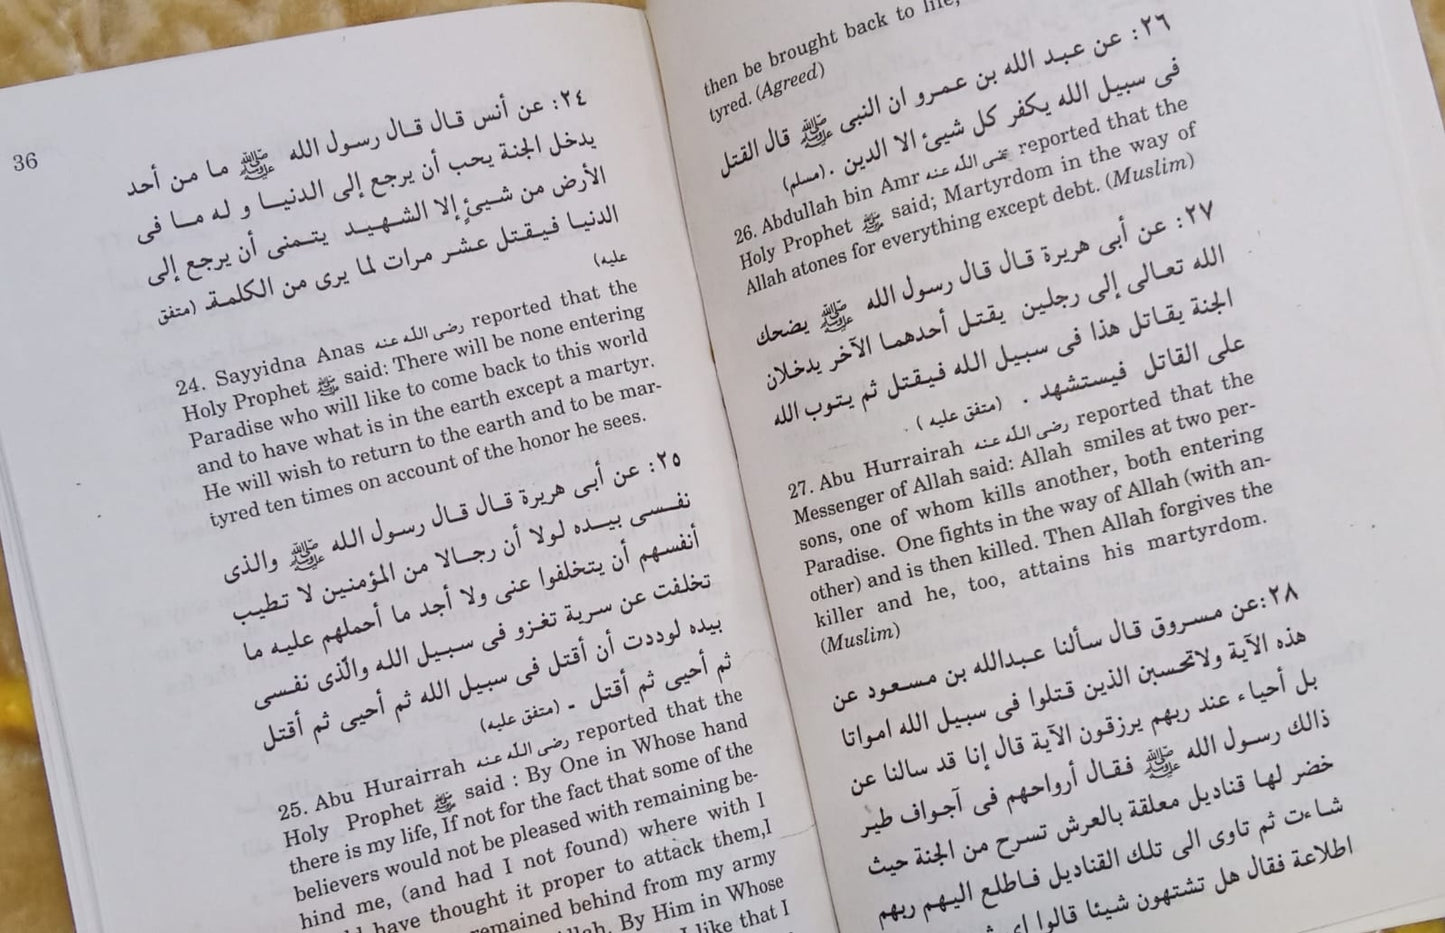 36
٢٤: عن أنس قال قال رسول الله ﷺ ما من أحد
يدخل الجنة يحب أن يرجع إلى الدنيا و له ما فى
الأرض من شيئٍ إلا الشهيد يتمنى أن يرجع إلى
الدنيا فيقتل عشر مرات لما يرى من الكلمة۔ (متفق
عليه)
24. Sayyidna Anas رضى الله عنه reported that the
Holy Prophet ﷺ said: There will be none entering
Paradise who will like to come back to this world
and to have what is in the earth except a martyr.
He will wish to return to the earth and to be mar-
tyred ten times on account of the honor he sees.
٢٥: عن أبى هريرة قال قال رسول الله ﷺ والذى
نفسى بيده لولا أن رجالا من المؤمنين لا تطيب
أنفسهم أن يتخلفوا عنى ولا أجد ما أحملهم عليه ما
تخلفت عن سرية تغزو فى سبيل الله والّذى نفسى
بيده لوددت أن أقتل فى سبيل الله ثم أحيى ثم أقتل
ثم أحيى ثم أقتل ۔ (متفق عليه)
25. Abu Hurairrah رضى الله عنه reported that the
Holy Prophet ﷺ said : By One in Whose hand
there is my life, If not for the fact that some of the
believers would not be pleased with remaining be-
hind me, (and had I not found) where with I
have thought it proper to attack them,I
remained behind from my army
By Him in Whose
I like that I
then be brought back to life,
tyred. (Agreed)
٢٦: عن عبد الله بن عمرو ان النبى ﷺ قال القتل
فى سبيل الله يكفر كل شيئ الا الدين .(مسلم)
26. Abdullah bin Amr رضى الله عنه reported that the
Holy Prophet ﷺ said; Martyrdom in the way of
Allah atones for everything except debt. (Muslim)
٢٧: عن أبى هريرة قال قال رسول الله ﷺ يضحك
الله تعالى إلى رجلين يقتل أحدهما الآخر يدخلان
الجنة يقاتل هذا فى سبيل الله فيقتل ثم يتوب الله
على القاتل فيستشهد . (متفق عليه ) .
27. Abu Hurrairah رضى الله عنه reported that the
Messenger of Allah said: Allah smiles at two per-
sons, one of whom kills another, both entering
Paradise. One fights in the way of Allah (with an-
other) and is then killed. Then Allah forgives the
killer and he, too, attains his martyrdom.
(Muslim)
٢٨:عن مسروق قال سألنا عبدالله بن مسعود عن
هذه الآية ولاتحسبن الذين قتلوا فى سبيل الله امواتا
بل أحياء عند ربهم يرزقون الآية قال إنا قد سالنا عن
ذالك رسول الله ﷺ فقال أرواحهم فى آجواف طير
خضر لها قناديل معلقة بالعرش تسرح من الجنة حيث
شاءت ثم تاوى الى تلك القناديل فاطلع اليهم ربهم
اطلاعة فقال هل تشتهون شيئا قالوا اى